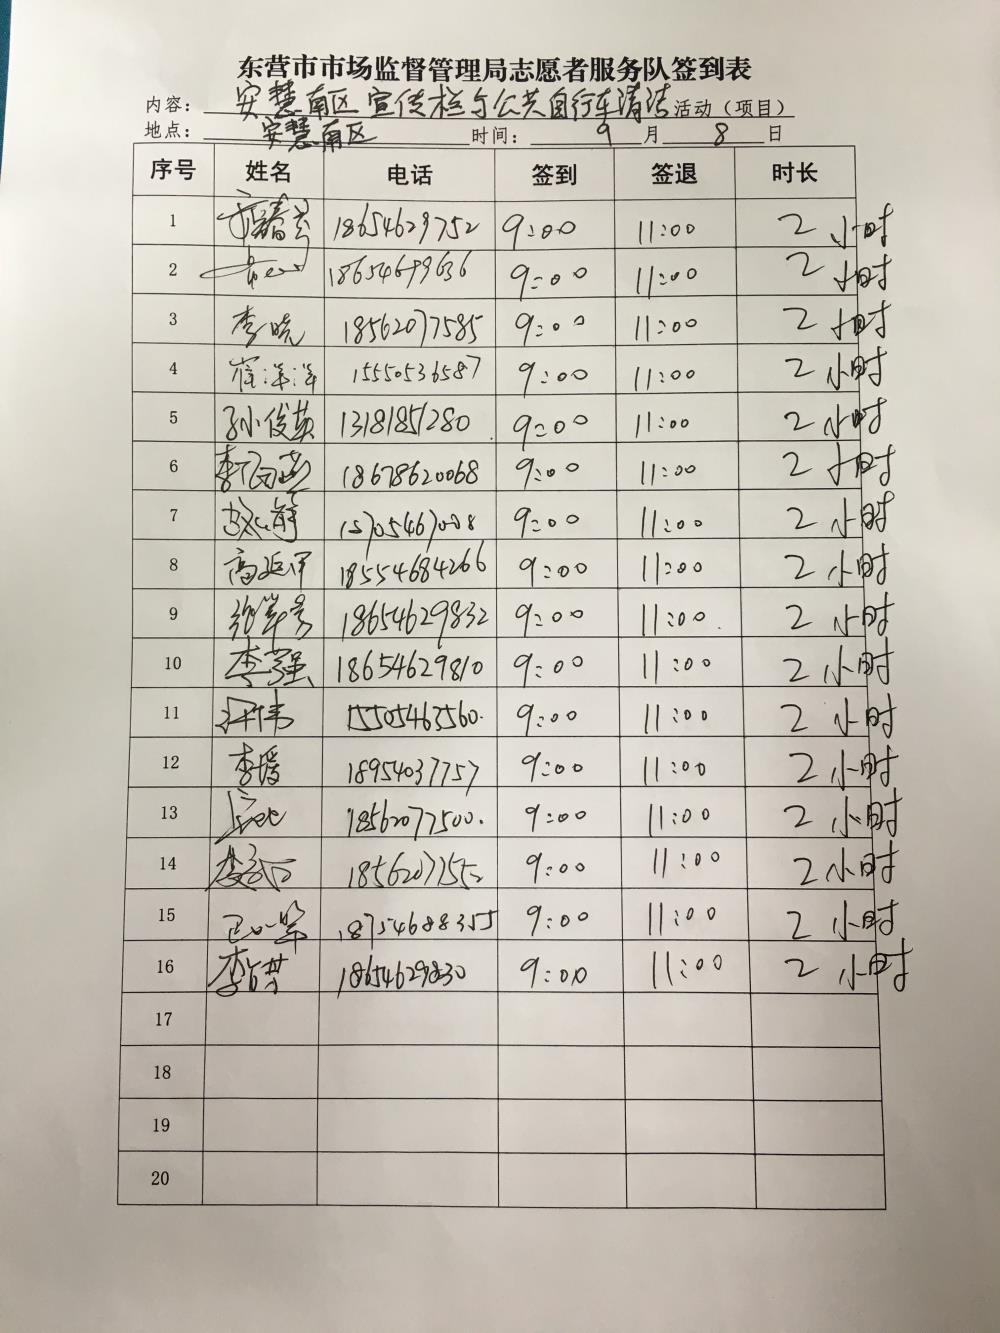 东营市市场监督管理局志愿者服务队签到表
内容：安慧南区宣传栏与公共自行车清洁活动（项目）
地点：安慧南区 时间：9月8日
序号 姓名 电话 签到 签退 时长
1 18654629752 9:00 11:00 2小时
2 18654699636 9:00 11:00 2小时
3 李晓 18562077585 9:00 11:00 2小时
4 崔洋洋 15550536587 9:00 11:00 2小时
5 孙俊英 13181851280 9:00 11:00 2小时
6 18678620068 9:00 11:00 2小时
7 9:00 11:00 2小时
8 高延军 18554684266 9:00 11:00 2小时
9 18654629832 9:00 11:00 2小时
10 李强 18654629810 9:00 11:00 2小时
11 15505463560. 9:00 11:00 2小时
12 李媛 18954037757 9:00 11:00 2小时
13 18562077500. 9:00 11:00 2小时
14 18562077552 9:00 11:00 2小时
15 18754688355 9:00 11:00 2小时
16 18654629830 9:00 11:00 2小时
17
18
19
20